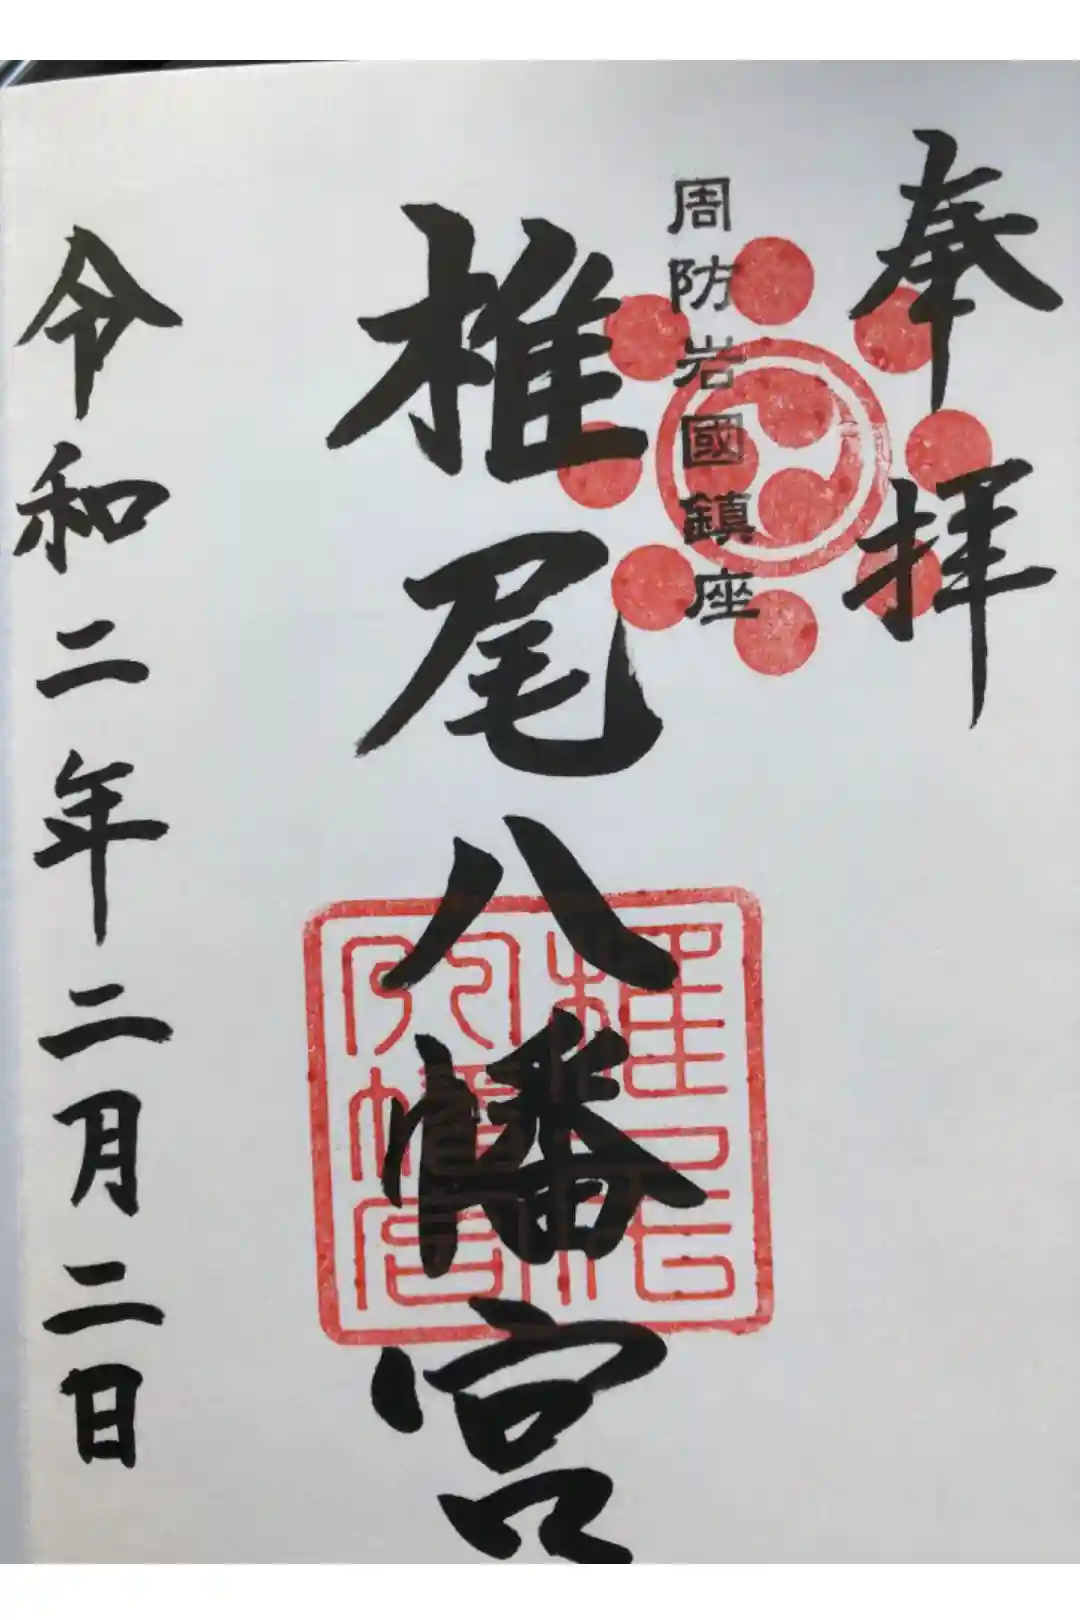 奉拝
周防岩國鎮座
椎尾八幡宮
椎尾
八幡宮
令和二年二月二日